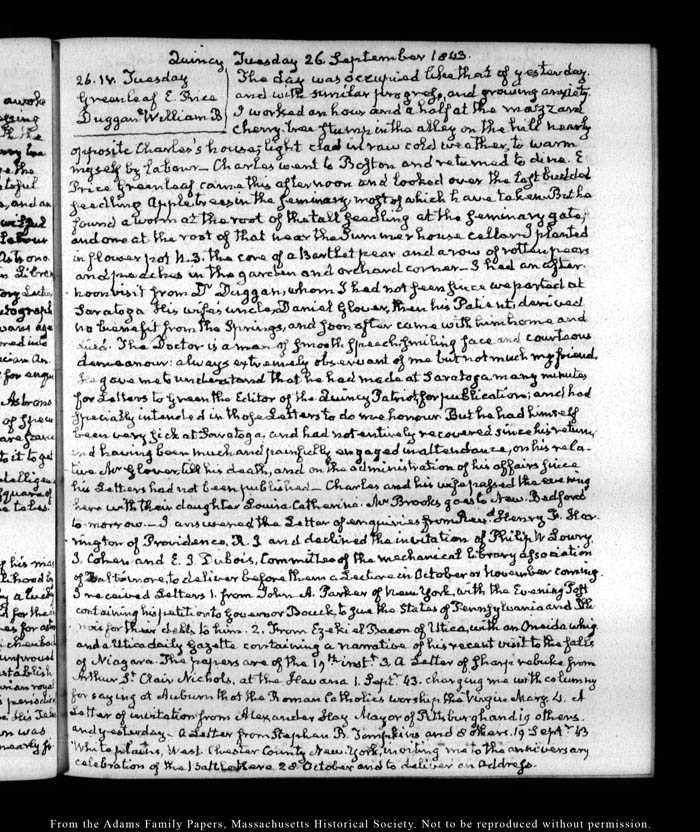 Quincy Tuesday 26. September 1843.
26. IV. Tuesday
Greenleaf E. Price
Duggan William B
The day was occupied like that of yesterday.
and with similar progress, and growing anxiety.
I worked an hour and a half at the mazzard
cherry tree stump in the alley on the hill nearly
opposite Charles's house; light clad in raw cold weather, to warm
myself by labour— Charles went to Boston and returned to dine. E
Price Greenleaf came this afternoon and looked over the last budded
seedling Apple trees in the seminary, most of which have taken. But he
found a worm at the root of the tall seedling at the seminary gate,
and one at the root of that near the Summer house cellar. I planted
in flower pot N. 3. the core of a Bartlet pear and a row of rotten pears
and peaches in the garden and orchard corner— I had an after-
noon visit from Dr. Duggan, whom I had not seen since we parted at
Saratoga His wife's uncle, Daniel Glover, then his Patient, derived
no benefit from the Springs, and soon after came with him home and
died. The Doctor is a man of smooth speech, smiling face and courteous
demeanour: always extremely observant of me but not much my friend.
He gave me to understand that he had made at Saratoga many minutes
for Letters to Green the Editor of the Quincy Patriot, for publication; and had
specially intended in those Letters to do me honour. But he had himself
been very sick at Saratoga, and had not entirely recovered since his return,
and having been much and painfully engaged in attendance, on his rela-
tive Mr Glover, till his death, and on the administration of his affairs since
his Letters had not been published— Charles and his wife passed the evening
here with their daughter Louisa Catherine. Mr Brooks goes to New-Bedford
to-morrow.— I answered the Letter of enquiries from Revd. Henry F. Har-
rington of Providence, R. I and declined the invitation of Philip W Lowry,
J. Cohen and E. J. Dubois, Committee of the mechanical library association
of Baltimore, to deliver before them a Lecture in October or November coming.
I received Letters 1. from John A. Parker of New York, with the Evening Post
containing his petition to Governor Bouck, to sue the States of Pennsylvania and Illi-
nois for their debts to him. 2. From Ezekiel Bacon of Utica, with an Oneida whig
and a Utica daily Gazette containing a narrative of his recent visit to the falls
of Niagara. The papers are of the 19th. inst. 3. A Letter of sharp rebuke from
Arthur St. Clair Nichols, at the Havana 1. Sept. 43. charging me with calumny
for saying at Auburn that the Roman Catholics worship the Virgin Mary. 4. A
Letter of invitation from Alexander Hay Mayor of Pittsburgh and 19 others.
and yesterday— a Letter from Stephen B. Tompkins and 8 others. 19 Sept. 43
White plains, West Chester County New-York, inviting me to the anniversary
celebration of the Battle there 28 October and to deliver an Address.
From the Adams Family Papers, Massachusetts Historical Society. Not to be reproduced without permission.